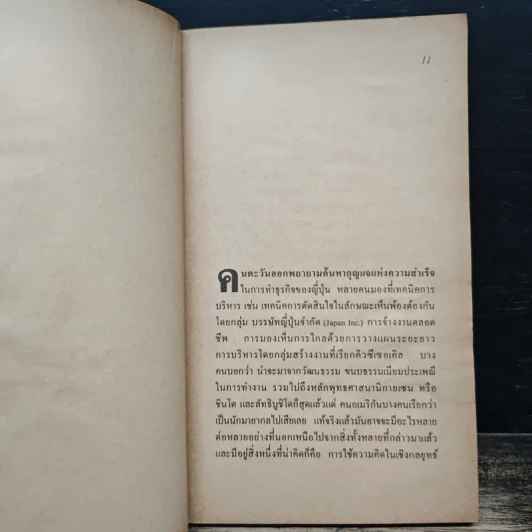 11
คนตะวันออกพยายามค้นหากุญแจแห่งความสำเร็จ
ในการทำธุรกิจของญี่ปุ่น หลายคนมองที่เทคนิคการ
บริหาร เช่น เทคนิคการตัดสินใจในลักษณะเห็นพ้องต้องกัน
โดยกลุ่ม บรรษัทญี่ปุ่นจำกัด (Japan Inc.) การจ้างงานตลอด
ชีพ การมองเห็นการไกลด้วยการวางแผนระยะยาว
การบริหารโดยกลุ่มสร้างงานที่เรียกคิวซีเซอเคิล บาง
คนบอกว่า น่าจะมาจากวัฒนธรรม ขนบธรรมเนียมประเพณี
ในการทำงาน รวมไปถึงหลักพุทธศาสนานิกายเซน หรือ
ชินโต และลัทธิบูชิโดก็สุดแล้วแต่ คนอเมริกันบางคนเรียกว่า
เป็นนักมายากลไปเสียเลย แท้จริงแล้วมันอาจจะมีอะไรหลาย
ต่อหลายอย่างที่นอกเหนือไปจากสิ่งทั้งหลายที่กล่าวมาแล้ว
และมีอยู่สิ่งหนึ่งที่น่าคิดก็คือ การใช้ความคิดในเชิงกลยุทธ์